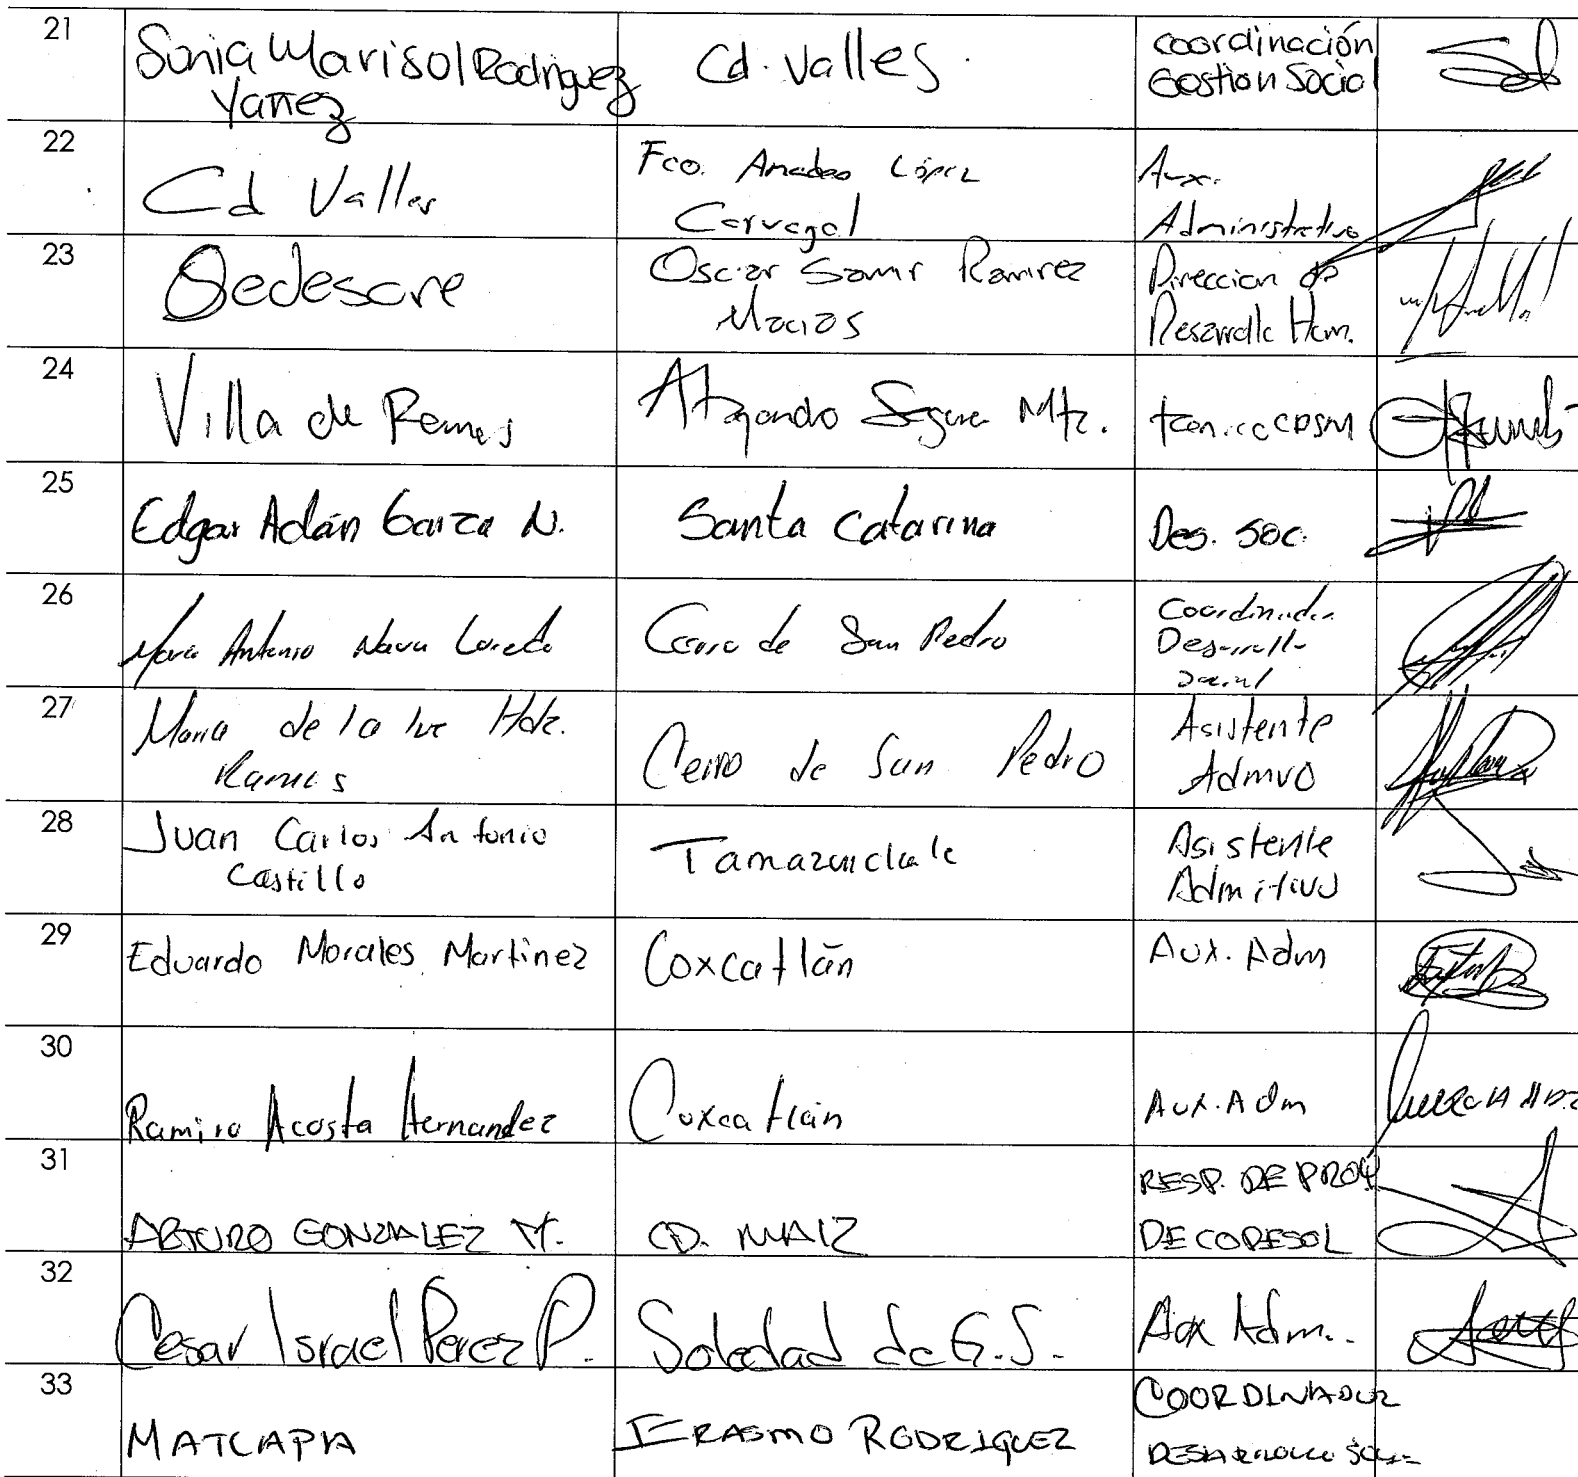 21
Sonia Marisol Rodriguez
Yañez
Cd. Valles
coordinación
Gestion Social
22
Cd Valles
Fco. Amadeo López
Carvagal
Aux.
Administrativo
23
Sedesore
Oscar Samir Ramirez
Macias
Direccion de
Desarrollo Hum.
24
Villa de Reyes
Segura Mtz.
25
Edgar Adán Garza N.
Santa Catarina
Des. Soc.
26
Antonio Nava Loredo
Cerro de San Pedro
Coordinador
Desarrollo
Social
27
Maria de la luz Hdz.
Ramos
Cerro de San Pedro
Asistente
Admvo
28
Juan Carlos Antonio
Castillo
Tamazunchale
Asistente
29
Eduardo Morales Martinez
Coxcatlán
Aux. Adm
30
Ramiro Acosta Hernandez
Coxcatlán
Aux. Adm
31
ARTURO GONZALEZ M.
CD. MAIZ
RESP. DE PROY
DE CODESOL
32
Cesar Israel Perez P.
Soledad de G.S.
Aux Adm.
33
ERASMO RODRIGUEZ
COORDINADOR